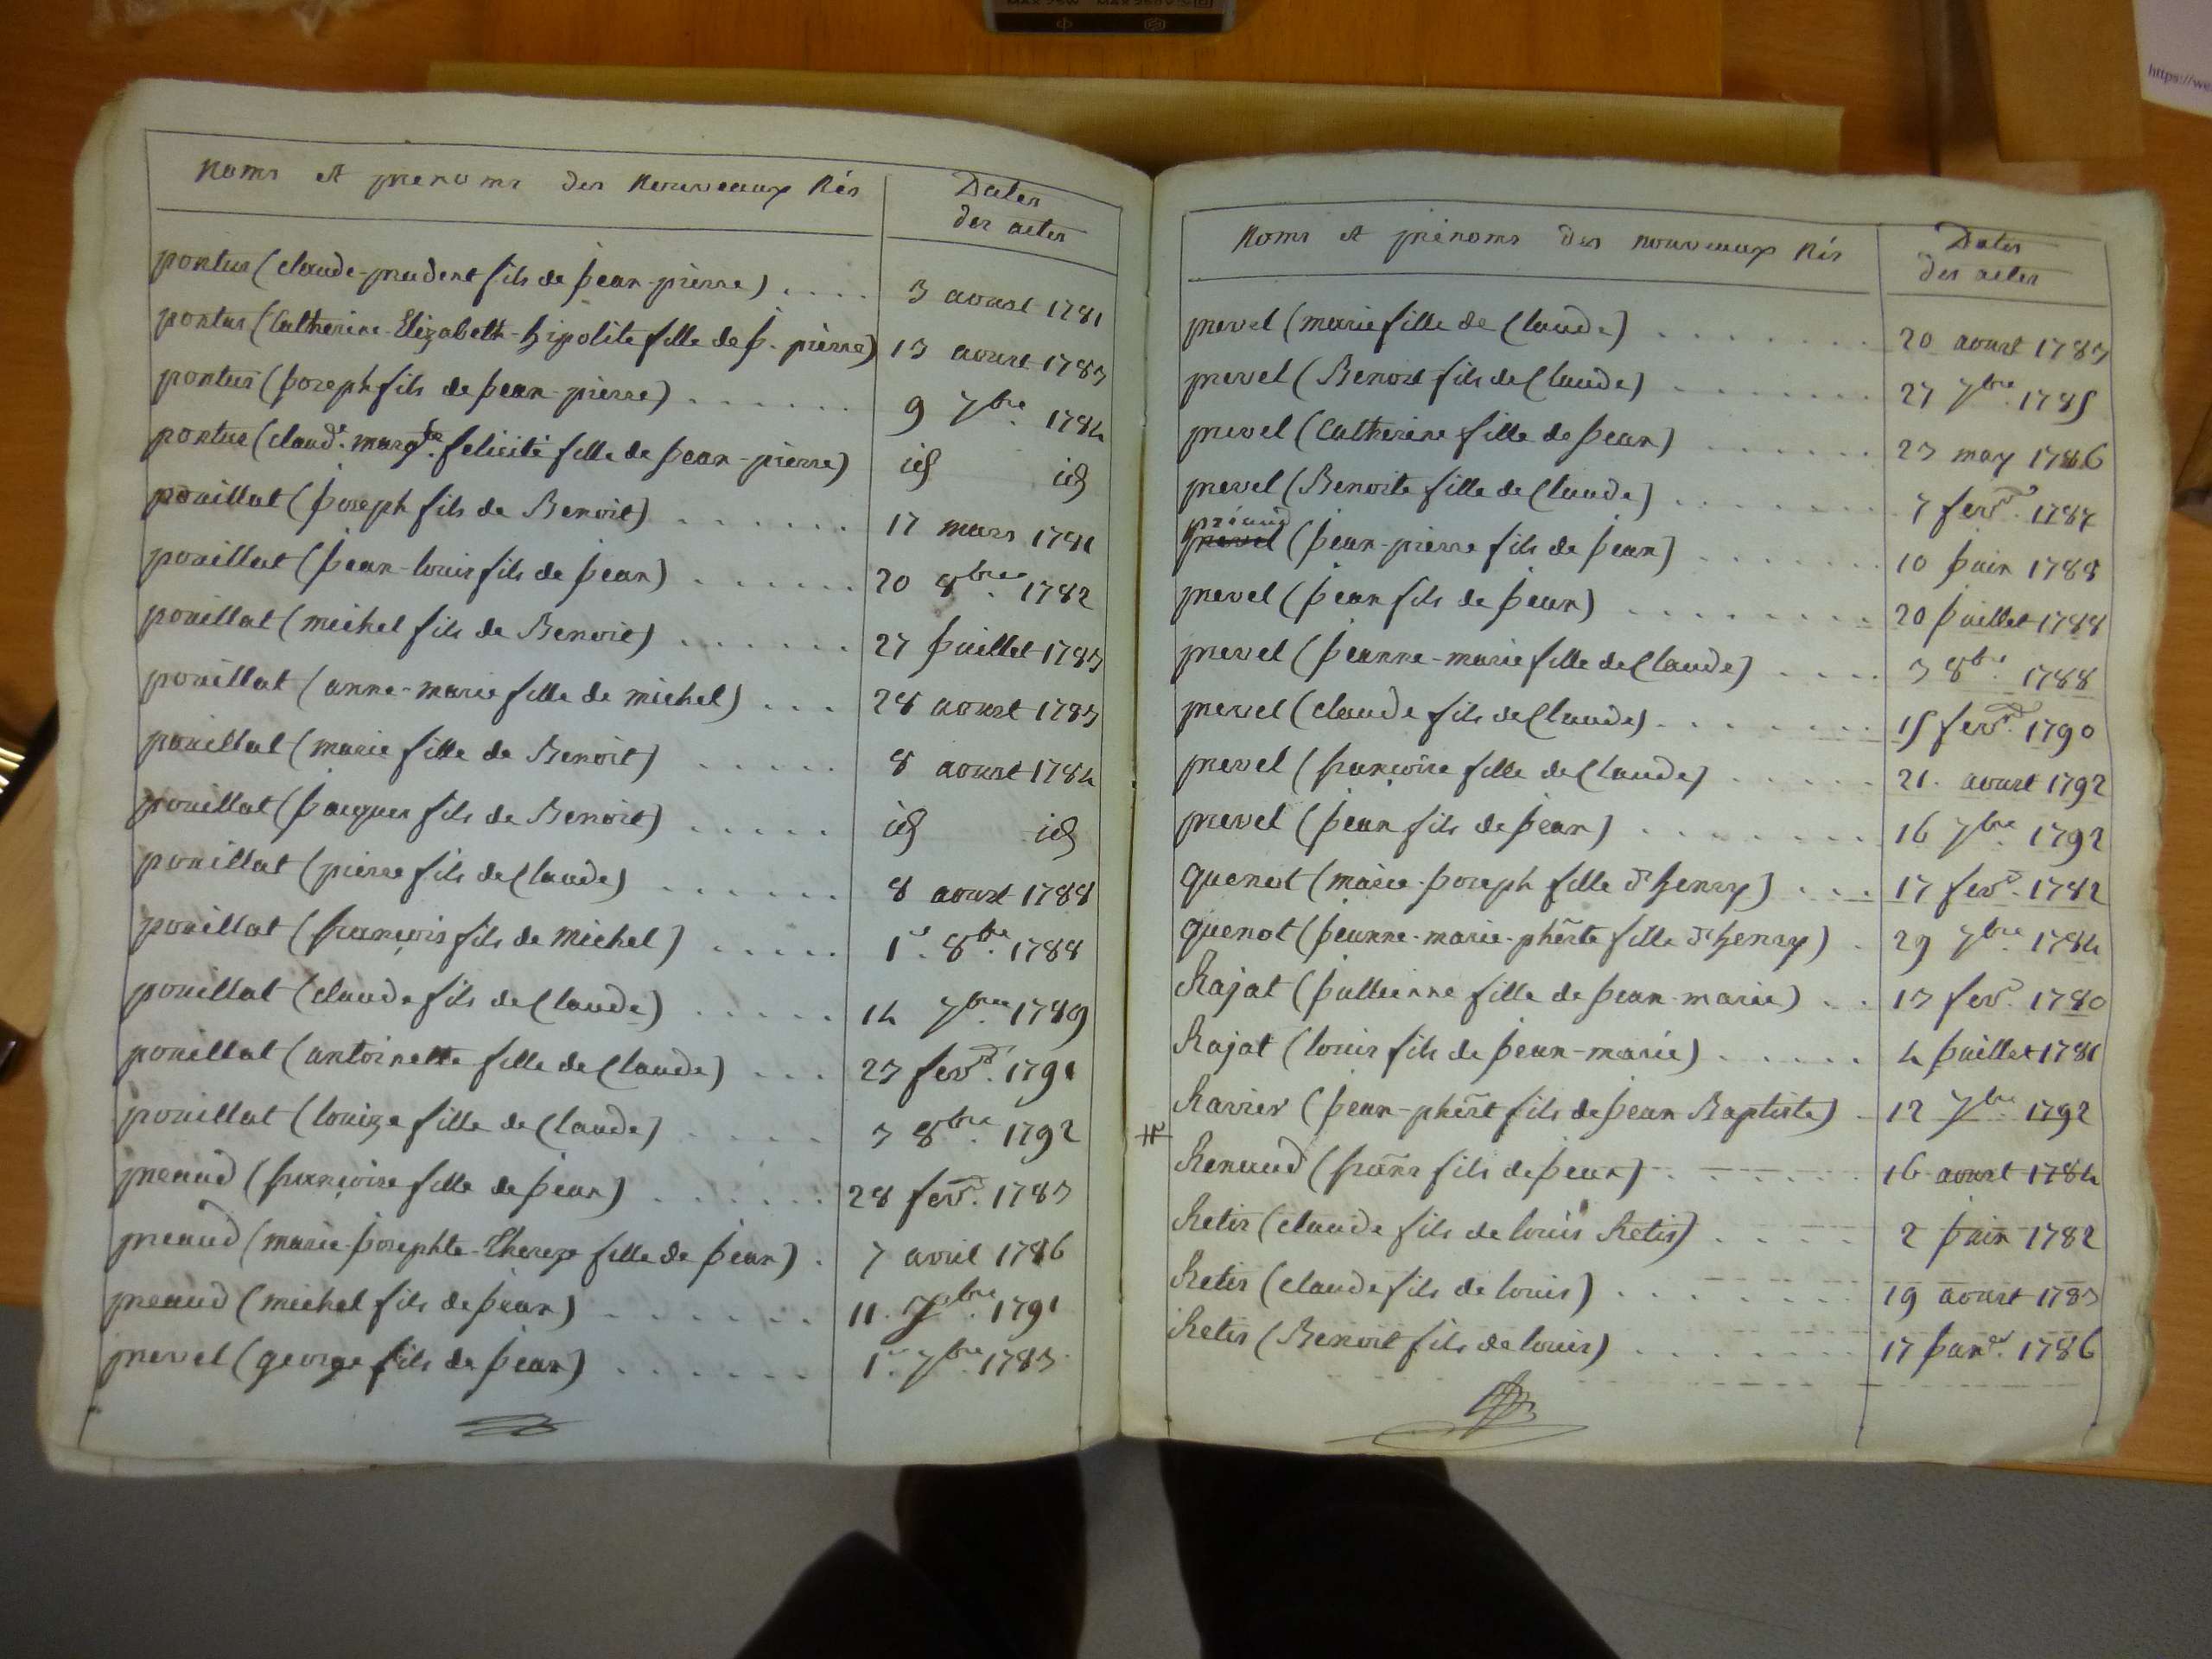 Noms et prenoms des Nouveaux Nés
Dates
des actes
pontus (claude-prudent fils de jean-pierre) . . . . 3 aoust 1781
pontus (Catherine-Elizabeth-hipolite fille de j. pierre) 13 aoust 1783
pontus (joseph fils de jean-pierre) . . . . . . 9 7bre. 1784
pontus (claud.e margte. felicité fille de jean-pierre) id id
pouillat (joseph fils de Benoit) . . . . . . 17 mars 1781
pouillat (jean-louis fils de jean) . . . . . . 20 8bre. 1782
pouillat (michel fils de Benoit) . . . . . . 27 juillet 1783
pouillat (anne-marie fille de michel) . . . 28 aoust 1783
pouillat (marie fille de Benoit) . . . . . 8 aoust 1784
pouillat (jacques fils de Benoit) . . . . . id id
pouillat (pierre fils de Claude) . . . . . . 8 aoust 1788
pouillat (françois fils de Michel) . . . . . 1er. 8bre. 1788
pouillat (claude fils de Claude) . . . . . 14 7bre. 1789
pouillat (antoinette fille de Claude) . . . 23 fevr. 1791
pouillat (louize fille de Claude) . . . . . 3 8bre. 1792
preaud (françoise fille de jean) . . . . . . 28 fevr. 1783
preaud (marie-josephte-Thereze fille de jean) . 7 avril 1786
preaud (michel fils de jean) . . . . . . 11. 7bre. 1791
prevel (george fils de jean) . . . . . . 1er. 7bre 1783
Noms et prénoms des nouveaux Nés
Dates
des actes
prevel (marie fille de Claude) . . . . . . . 20 aoust 1783
prevel (Benoit fils de Claude) . . . . . . . 27 7bre. 1785
prevel (Catherine fille de jean) . . . . . . 23 may 1786
prevel (Benoite fille de Claude) . . . . . . . 7 fevr. 1787
préaud
prevel (jean-pierre fils de jean) . . . . . . . 10 juin 1788
prevel (jean fils de jean) . . . . . . . . 20 juillet 1788
prevel (jeanne-marie fille de Claude) . . . . 3 8bre. 1788
prevel (claude fils de Claude) . . . . . . . 15 fevr. 1790
prevel (françoise fille de Claude) . . . . . 21. aoust 1792
prevel (jean fils de jean) . . . . . . . 16 7bre. 1792
quenot (marie-joseph fille d'henry) . . . 17 fevr. 1782
quenot (jeanne-marie-pherte fille d'henry) . 29 7bre. 1784
Rajat (jullienne fille de jean-marie) . . 13 fevr. 1780
Rajat (louis fils de jean-marie) . . . . . 4 juillet 1781
Ravier (jean-phert fils de jean Baptiste) . 12 7bre. 1792
#
Renaud (frans fils de jean) . . . . . . 16 aoust 1784
Retis (claude fils de louis Retis) . . . . . 2 juin 1782
Retis (claude fils de louis) . . . . . . . 19 aoust 1783
Retis (Benoit fils de louis) . . . . . . . 17 janer. 1786
https://we